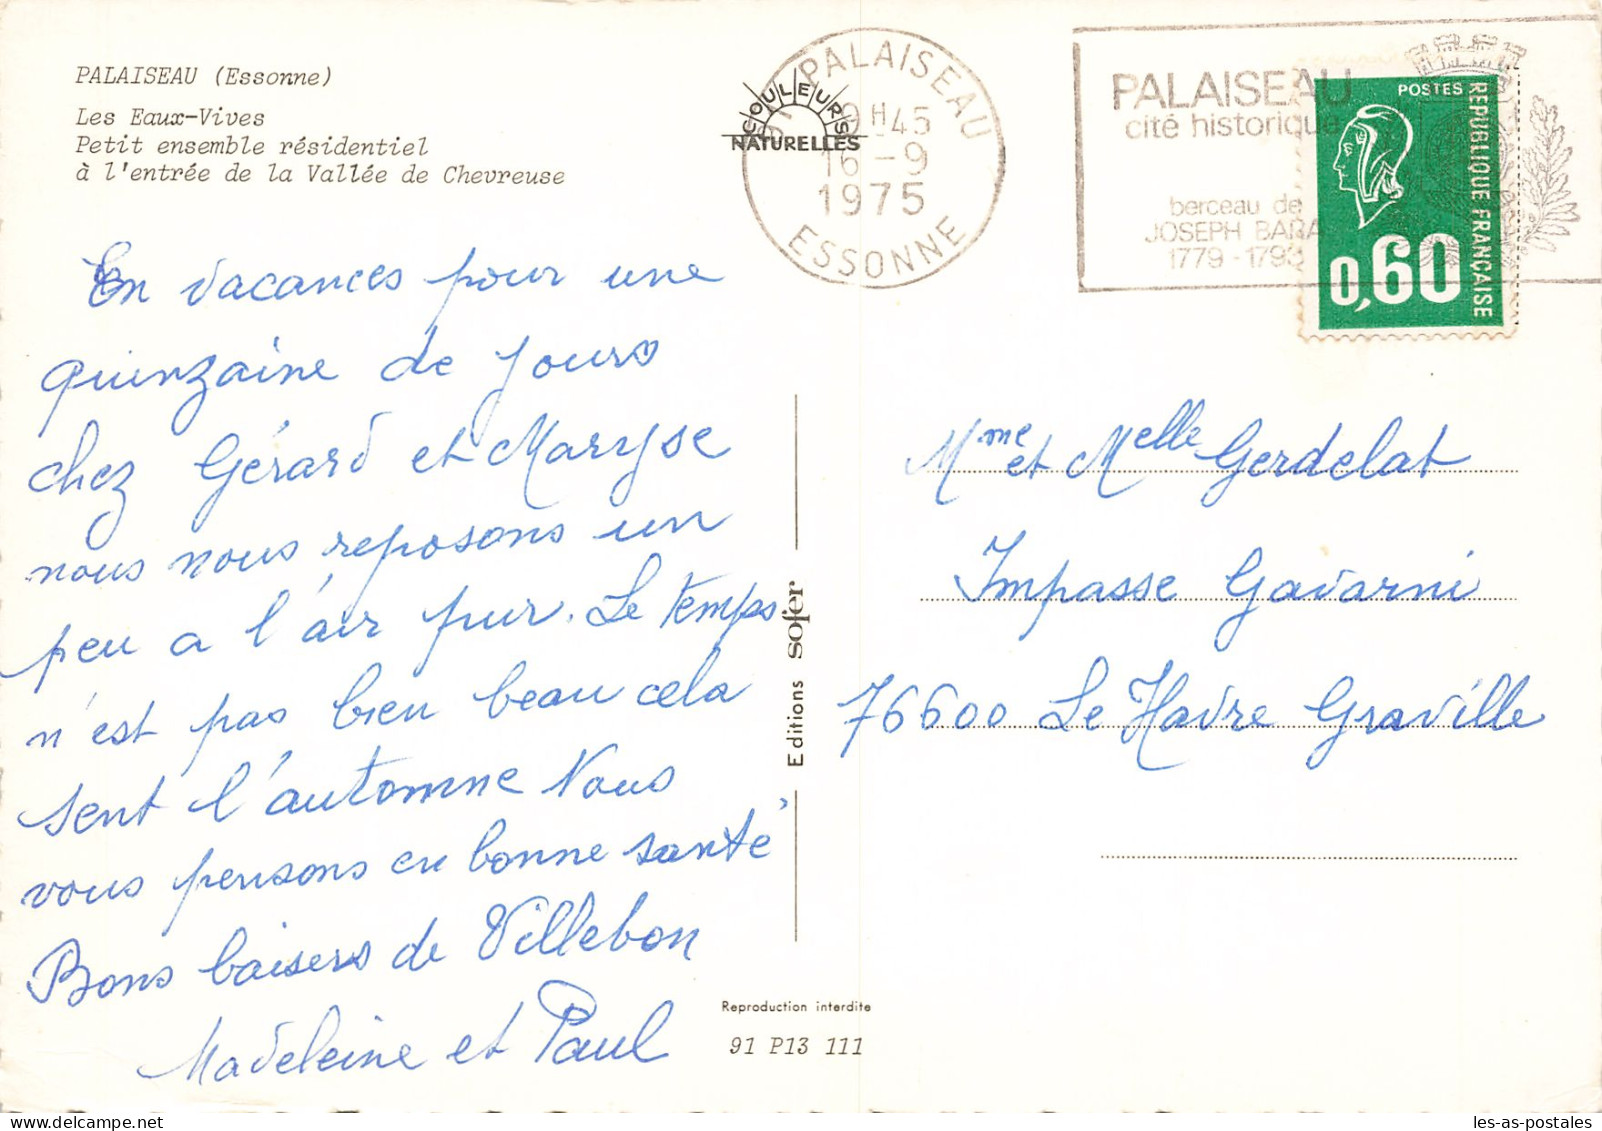 PALAISEAU (Essonne)
Les Eaux-Vives
Petit ensemble résidentiel
à l'entrée de la Vallée de Chevreuse
COULEURS
NATURELLES
91 PALAISEAU
9H45
16-9
1975
ESSONNE
PALAISEAU
cité historique
berceau de
JOSEPH BARA
1779-1793
POSTES
REPUBLIQUE FRANCAISE
0,60
En vacances pour une
quinzaine de jours
chez Gérard et Maryse
nous nous reposons un
peu a l'air pur. Le temps
n'est pas bien beau cela
sent l'automne Nous
vous pensons en bonne santé
Bons baisers de Villebon
Madeleine et Paul
Editions sofer
Mme et Melle Gerdelat
Impasse Gavarni
76600 Le Havre Graville
Reproduction interdite
91 P13 111
les-as-postales